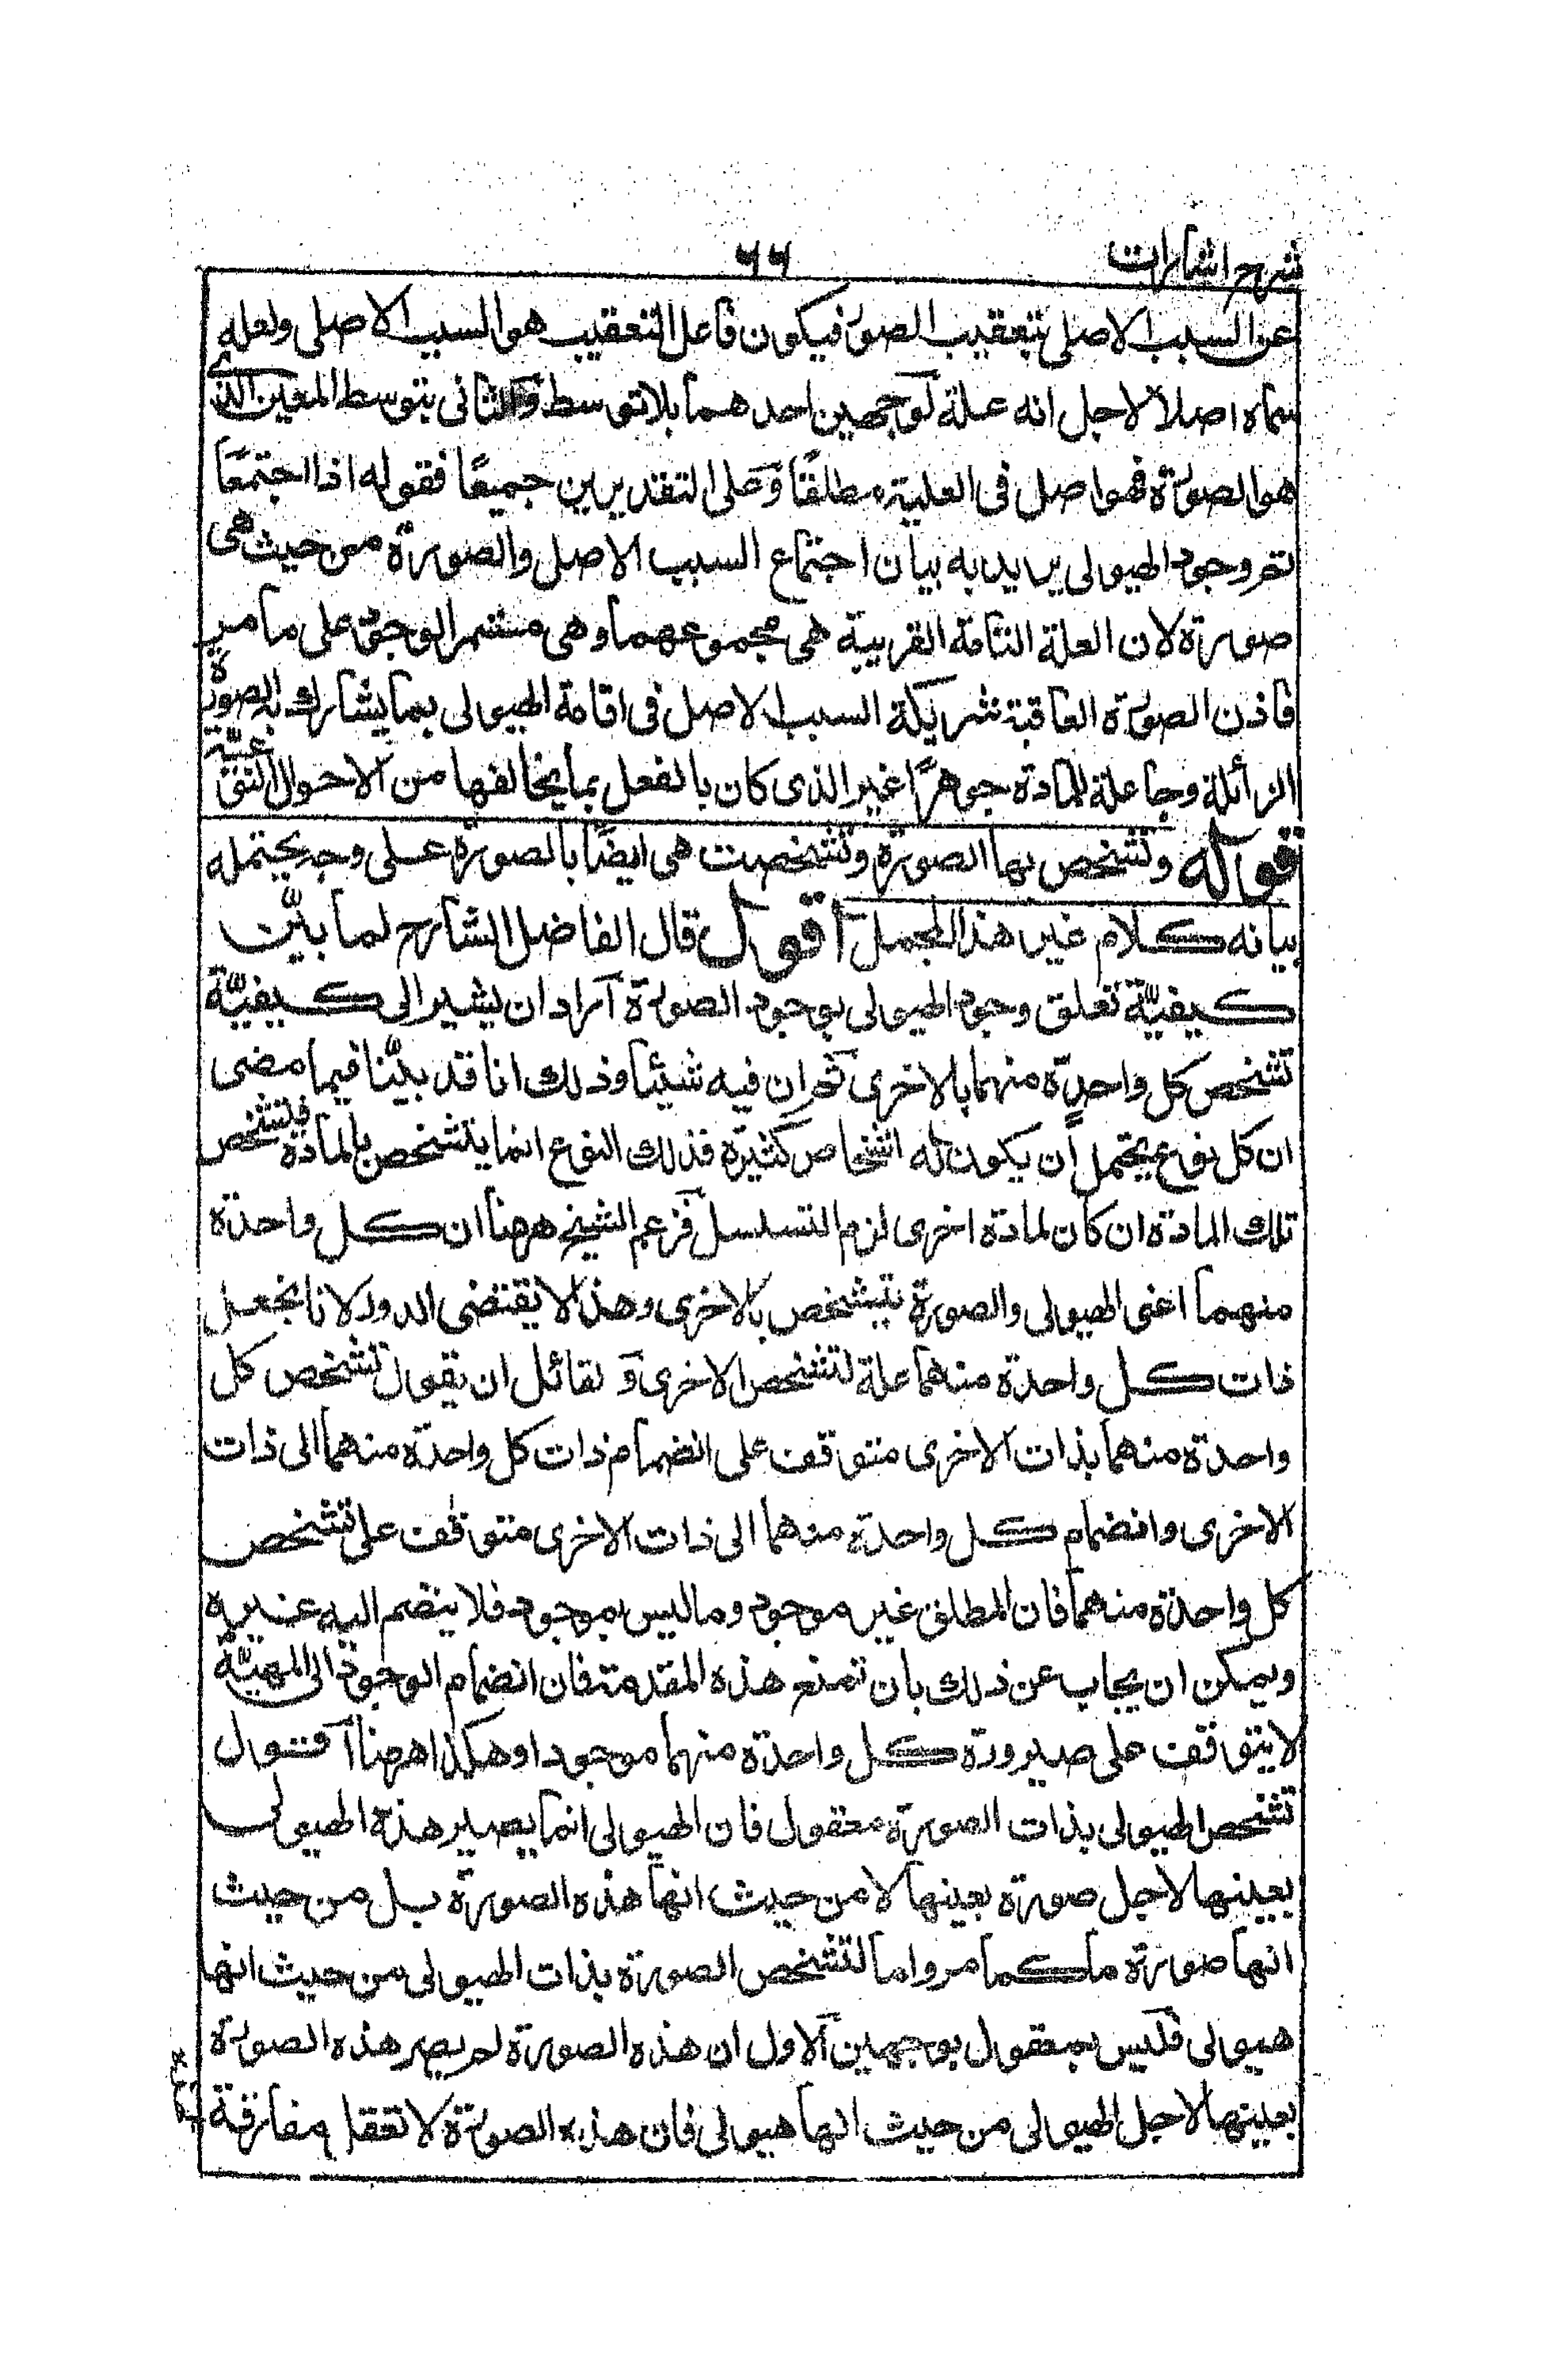 شرح اشارات
٦٦
عن السبب الاصل بتعقيب الصور فيكون فاعل التعقيب هو السبب الاصلى ولعله
سماه اصلا لاجل انه علة لوجهين احدهما بلا توسط والثانى بتوسط المعين الذى
هو الصورة فهو اصل فى العلية مطلقًا وعلى التقديرين جميعًا فقوله اذا اجتمعًا
تم وجود الهيولى يريد به بيان اجتماع السبب الاصل والصورة من حيث هى
صورة لان العلة التامة القريبة هى مجموعهما وهى مستمر الوجود على ما مر
فاذن الصورة العاقبة شريكة السبب الاصل فى اقامة الهيولى بما يشارك به الصورة
الزائلة وجاعلة للمادة جوهرًا غير الذى كان بالفعل بما يخالفها من الاحوال النوعيّة
قوله وتشخص بها الصورة وتشخصت هى ايضًا بالصورة على وجه يحتمله
بيانه كلام غير هذا المجمل اقول قال الفاضل الشارح لما بيّن
كيفيّة تعلق وجود الهيولى بوجود الصورة اراد ان يشير الى كيفيّة
تشخص كل واحدة منهما بالاخرى ثم ان فيه شيئا وذلك انا قد بيّنا فيما مضى
ان كل نوع يحتمل أن يكون له اشخاص كثيرة فذلك النوع انما يتشخص بالمادة فتشخص
تلك المادة ان كان لمادة اخرى لزم التسلسل فزعم الشيخ ههنا ان كل واحدة
منهما اعنى الهيولى والصورة يتشخص بالاخرى وهذا لا يقتضى الدور لانا نجعل
ذات كل واحدة منهما علة لتشخص الاخرى و لقائل ان يقول تشخص كل
واحدة منهما بذات الاخرى متوقف على انضمام ذات كل واحدة منهما الى ذات
الاخرى وانضمام كل واحدة منهما الى ذات الاخرى متوقف على تشخص
كل واحدة منهما فان المطلق غير موجود وما ليس بموجود فلا ينضم اليه غيره
ويمكن ان يجاب عن ذلك بان تمنع هذه المقدمة فان انضمام الوجود الى المهيّة
لا يتوقف على صيرورة كل واحدة منهما موجودا وهكذا ههنا اقول
تشخص الهيولى بذات الصورة معقول فان الهيولى انما يصير هذه الهيولى
بعينها لاجل صورة بعينها لا من حيث انها هذه الصورة بل من حيث
انها صورة ما كما مر واما لتشخص الصورة بذات الهيولى من حيث انها
هيولى فليس بمعقول بوجهين الاول ان هذه الصورة لم يصر هذه الصورة
بعينها لاجل الهيولى من حيث انها هيولى فان هذه الصورة لا تعقل مفارقة